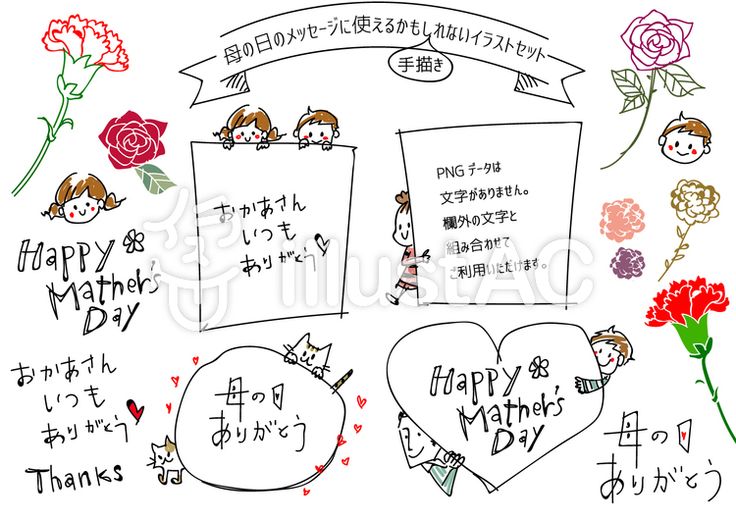 母の日のメッセージに使えるかもしれないイラストセット
手描き
おかあさん
いつも
ありがとう
PNGデータは
文字がありません。
欄外の文字と
組み合わせて
ご利用いただけます。
Happy
Mather's
Day
illustAC
おかあさん
いつも
ありがとう
Thanks
母の日
ありがとう
Happy
Mather's
Day
母の日
ありがとう